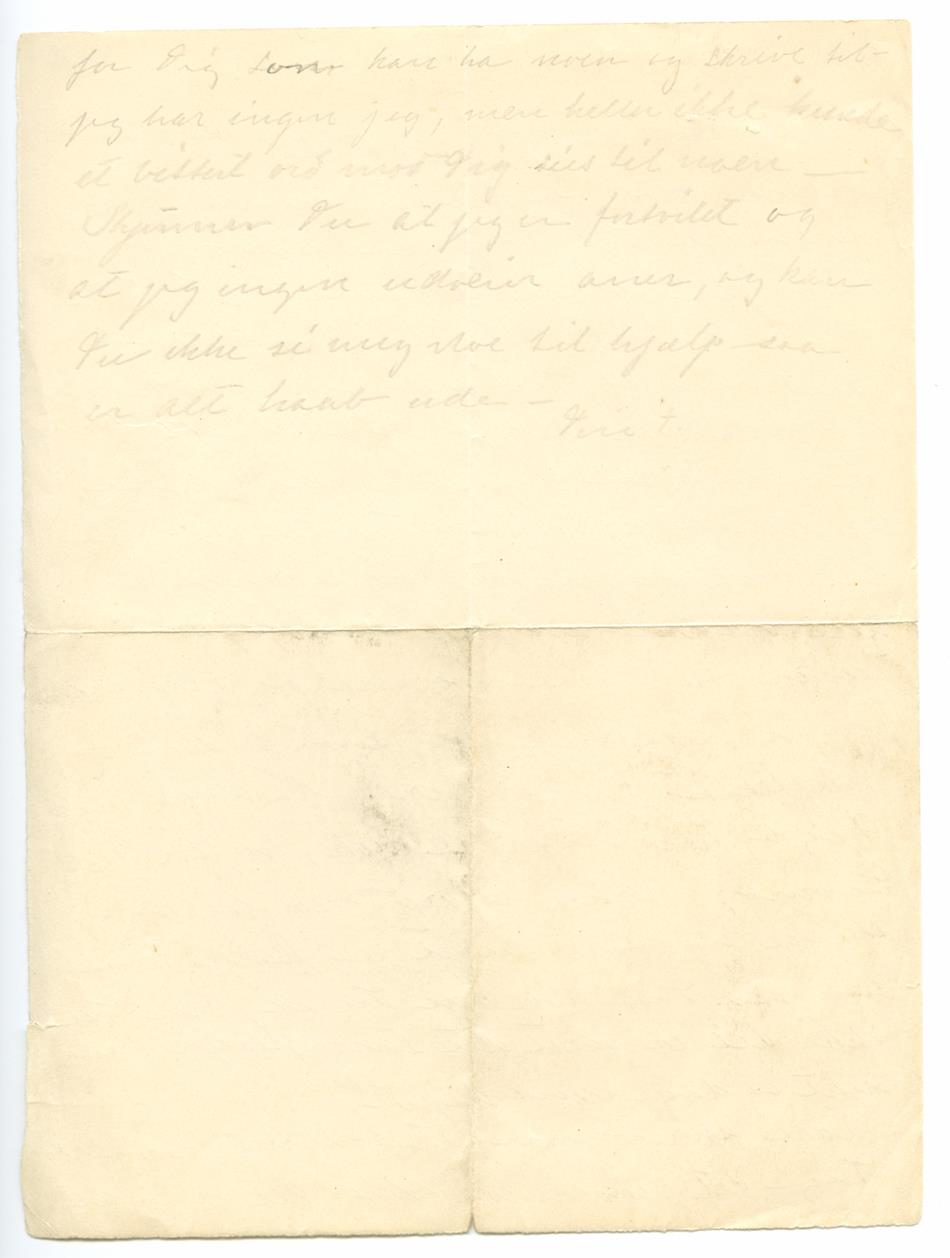 for Dig som kan ha noen og skrive til –
jeg har ingen jeg, men heller ikke kunde
et vissent ord mod Dig sies til noen —
Skjønner Du at jeg er fortvilet og
at jeg ingen udveier aner, og kan
Du ikke si meg noe til hjælp saa
er alt haab ude –
Din t.